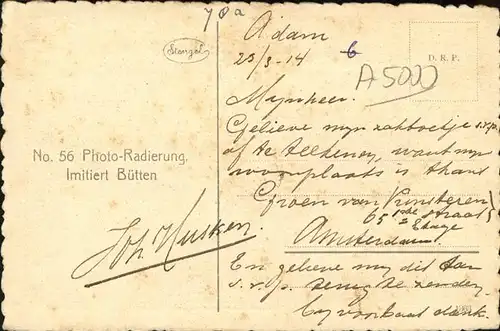 78a
Adam
23/3-14
6
Stengel
D. R. P.
A5000
Mynheer.
Gelieve myn zakboekje s.v.p.
af te teekenen, want myn
woonplaats is thans
No. 56 Photo-Radierung.
Imitiert Bütten
Groen van Prinsteren
straat
65
2e Etage
Amsterdam.
Joh Husken.
En gelieve my dit dan
s.v.p. terug te zenden
by voorbaat dank.